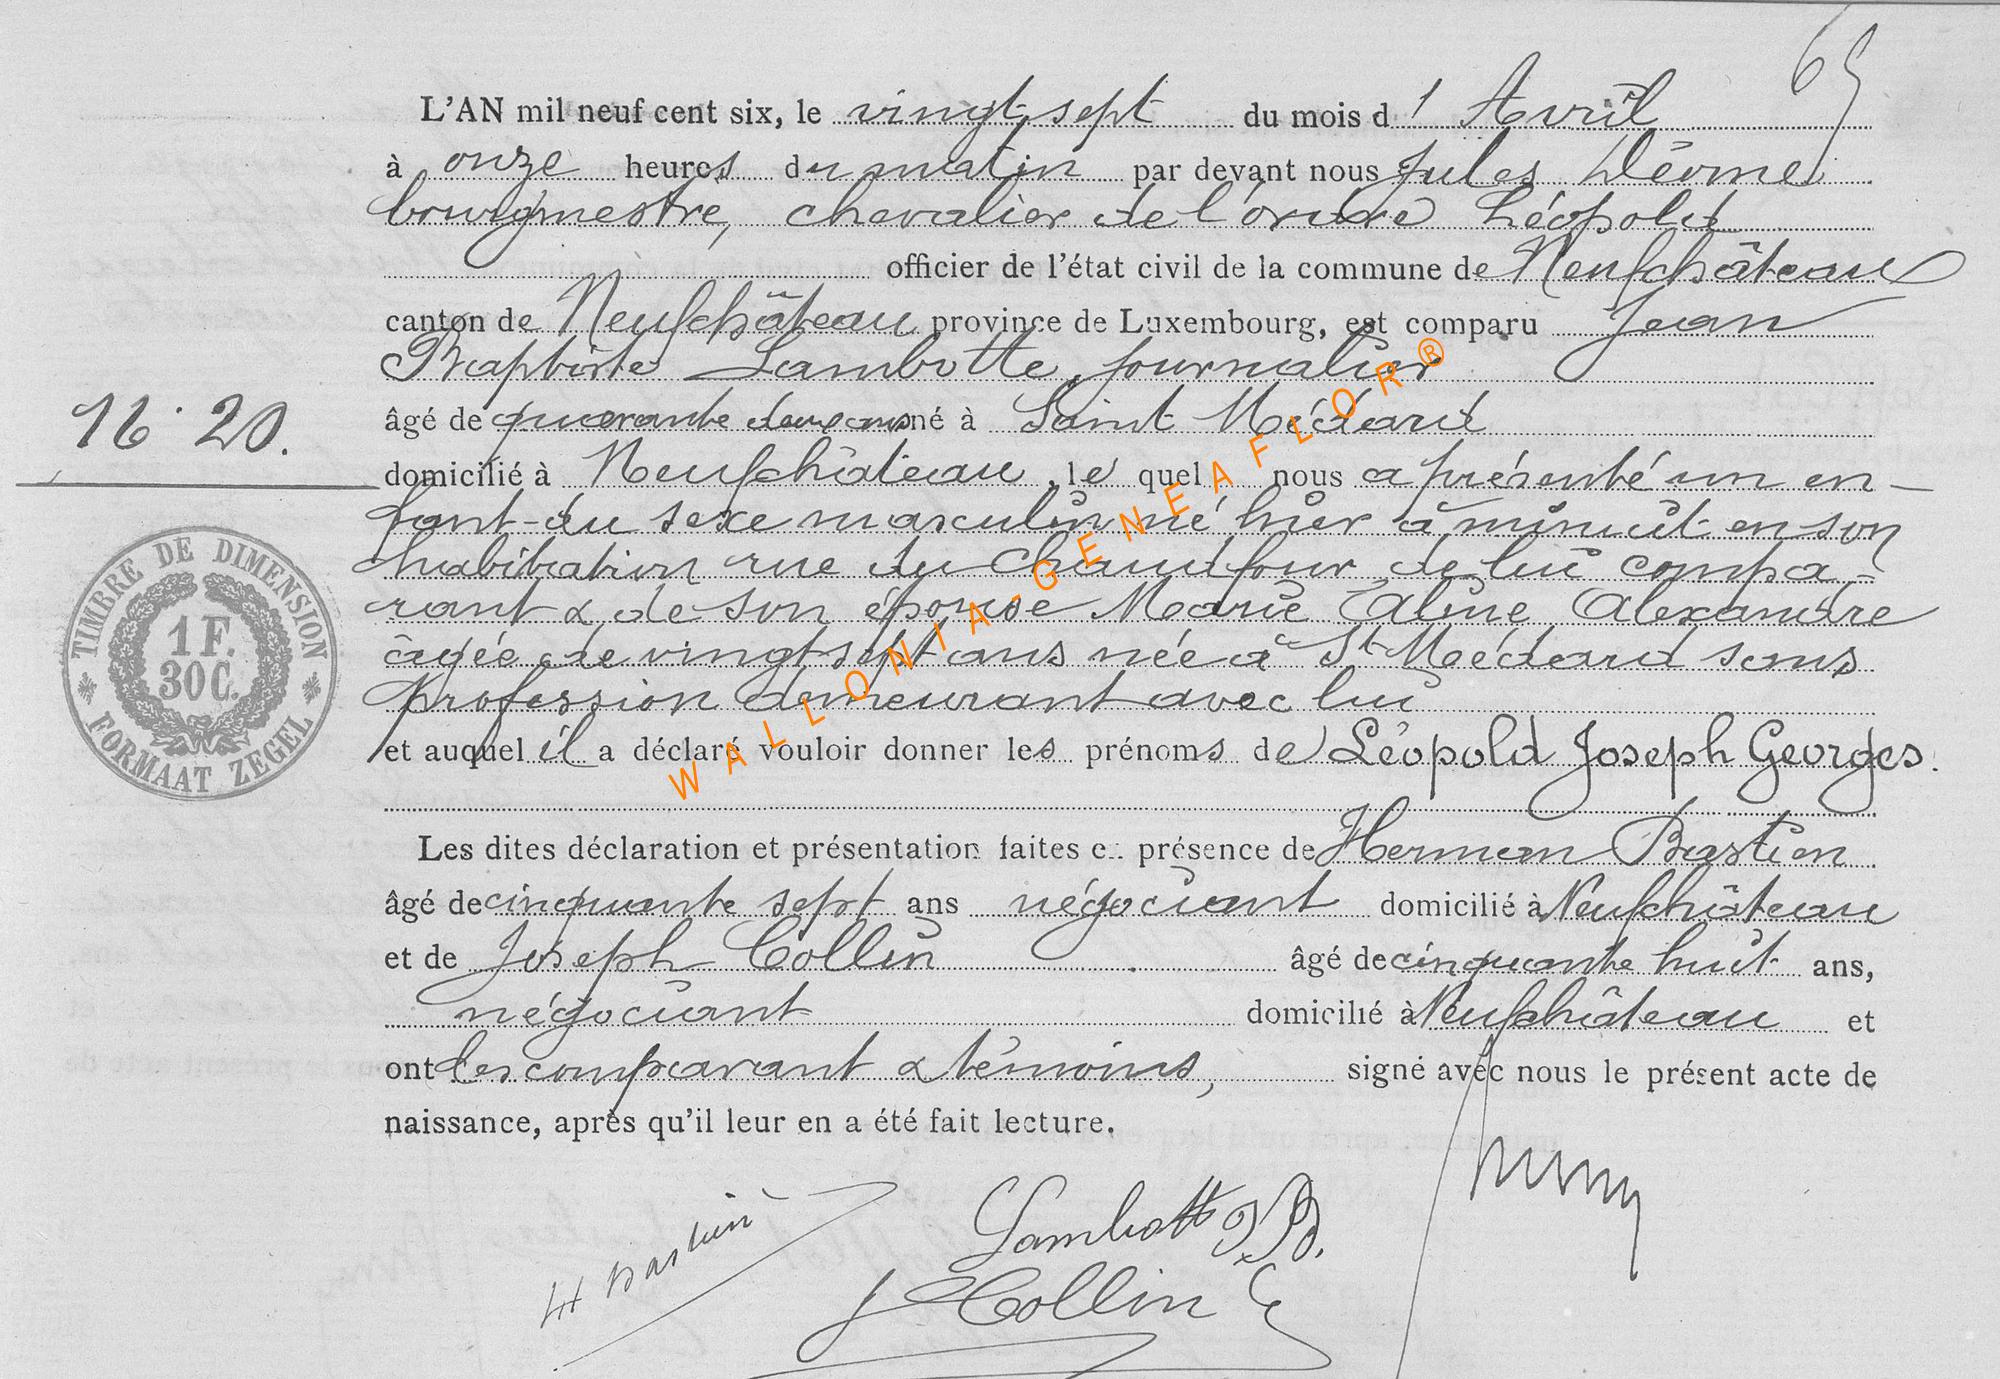 65
L'AN mil neuf cent six, le vingt sept du mois d' Avril
à onze heures du matin par devant nous Jules
bourgmestre, chevalier de l'ordre Léopold
officier de l'état civil de la commune de Neufchâteau
canton de Neufchâteau province de Luxembourg, est comparu Jean
Baptiste Lambotte, journalier
âgé de quarante deux ans né à Saint Médard
Nº 20.
domicilié à Neufchâteau, le quel nous a présenté un en-
fant du sexe masculin né hier à minuit en son
habitation rue du Chaudfour de lui compa-
rant & de son épouse Marie Aline Alexandre
âgée de vingt sept ans née à St Médard sans
profession demeurant avec lui
et auquel il a déclaré vouloir donner les prénoms de Léopold Joseph Georges.
TIMBRE DE DIMENSION
1 F.
30 C.
FORMAAT ZEGEL
WALLONIA-GENEAFLOR®
Les dites déclaration et présentation faites en présence de Herman Bastien
âgé de cinquante sept ans négociant domicilié à Neufchâteau
et de Joseph Collin âgé de cinquante huit ans,
négociant domicilié à Neufchâteau et
ont les comparant & témoins, signé avec nous le présent acte de
naissance, après qu'il leur en a été fait lecture.
H Bastien
Lambotte J.B.
J Collin